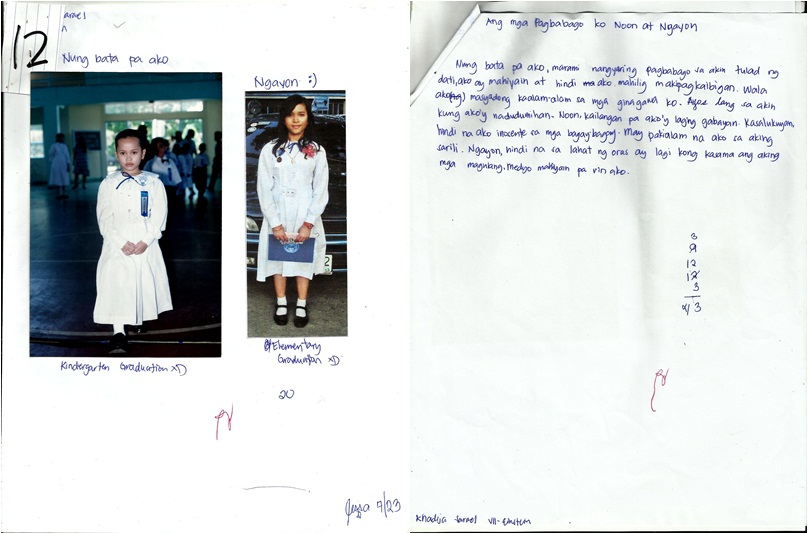 12
Nung bata pa ako
Ngayon :)
Kindergarten Graduation xD
Elementary
Graduation xD
20
9/23
Ang mga Pagbabago ko Noon at Ngayon
Nung bata pa ako, marami nangyaring pagbabago sa akin tulad ng
dati, ako ay mahiyain at hindi ako mahilig makipagkaibigan. Wala
akong masyadong kaalam-alam sa mga ginagawa ko. Ayos lang sa akin
kung ako'y nadudumihan. Noon, kailangan pa ako'y laging gabayan. Kasalukuyan,
hindi na ako inocente sa mga bagay-bagay. May pakialam na ako sa aking
sarili. Ngayon, hindi na sa lahat ng oras ay lagi kong kasama ang aking
mga magulang. Medyo mahiyain pa rin ako.
3
9
12
12
3
3
Khadija Israel VII-